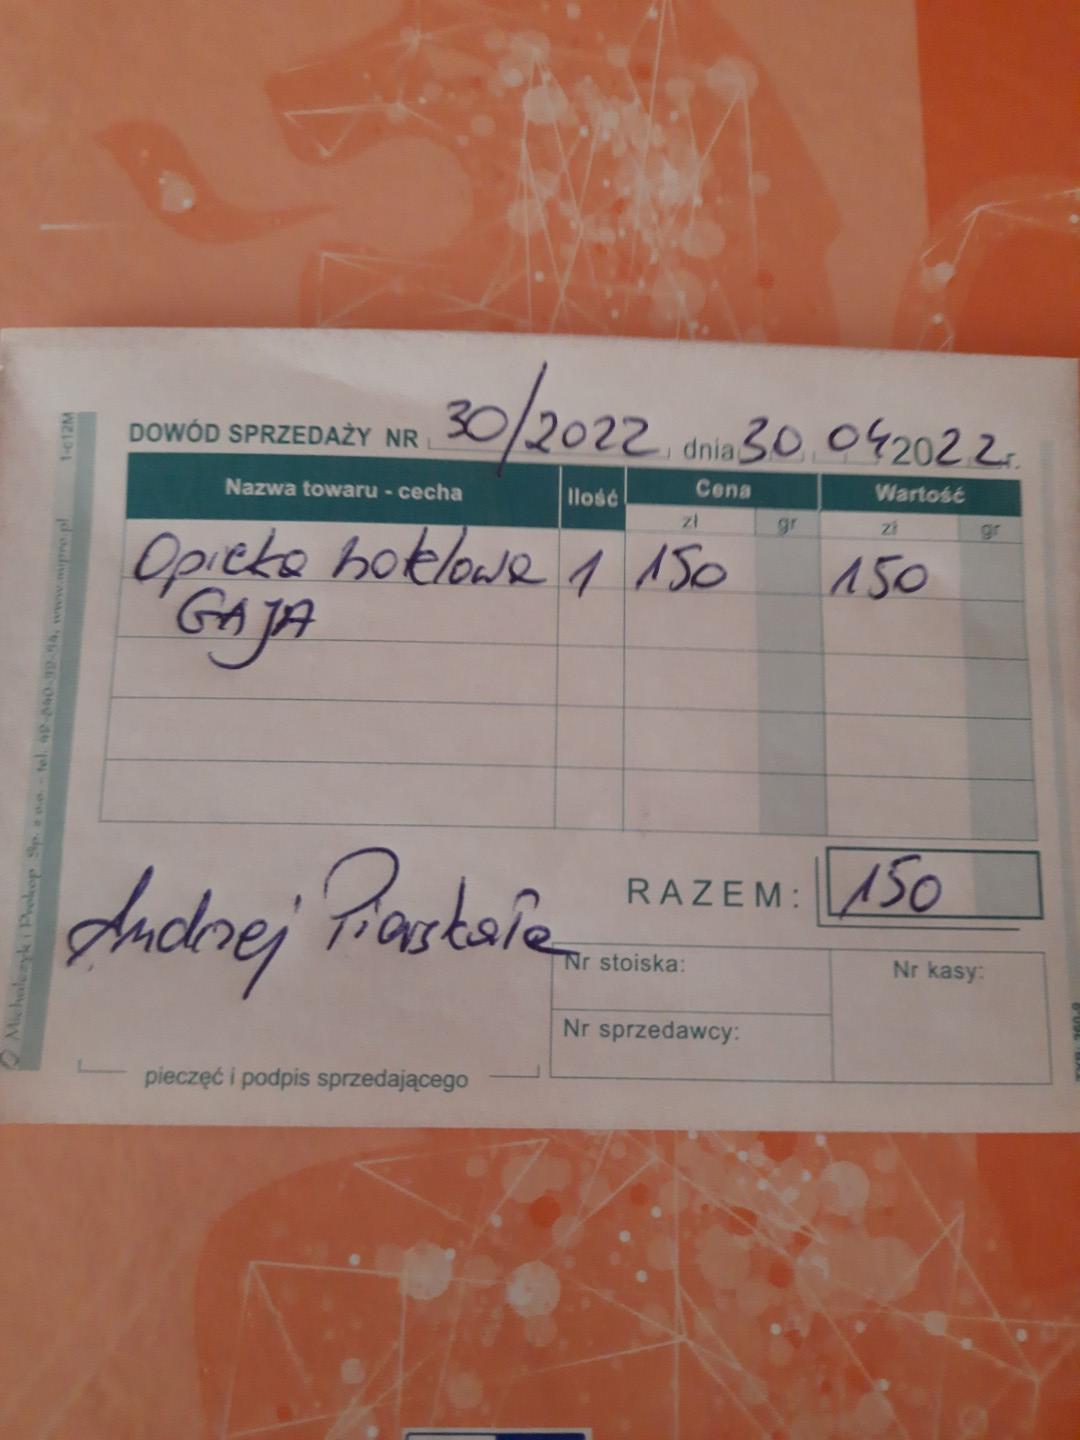 DOWÓD SPRZEDAŻY NR 30/2022, dnia 30 04 2022 r.
Nazwa towaru - cecha Ilość Cena Wartość
zł gr zł gr
Opieka hotelowa 1 150 150
GAJA
RAZEM: 150
Andrzej
Nr stoiska: Nr kasy:
Nr sprzedawcy:
pieczęć i podpis sprzedającego
1-c12M
Michalczyk i Prokop Sp. z o.o. - tel. www.mipro.pl